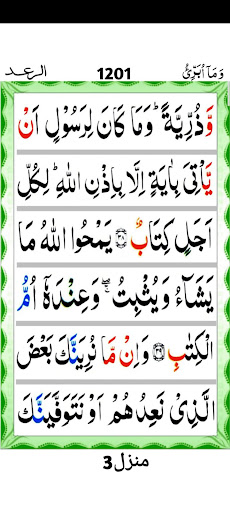 وَمَآ اُبَرِّئُ 1201 الرعد
وَّذُرِّيَّةً ؕ وَمَا كَانَ لِرَسُوْلٍ اَنْ
يَّاْتِيَ بِاٰيَةٍ اِلَّا بِاِذْنِ اللّٰهِ ؕ لِكُلِّ
اَجَلٍ كِتَابٌ ﴿۳۸﴾ يَمْحُوا اللّٰهُ مَا
يَشَآءُ وَيُثْبِتُ ۖ وَعِنْدَهٗۤ اُمُّ
الْكِتٰبِ ﴿۳۹﴾ وَاِنْ مَّا نُرِيَنَّكَ بَعْضَ
الَّذِيْ نَعِدُهُمْ اَوْ نَتَوَفَّيَنَّكَ
منزل3